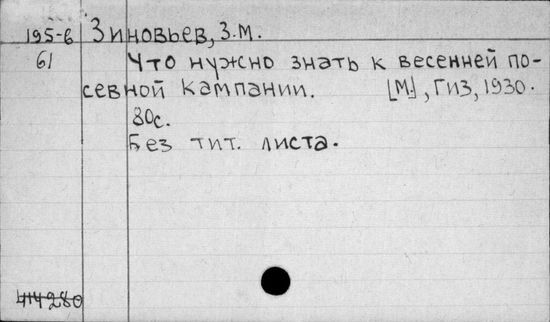 195-6 Зиновьев, З.М.
61 Что нужно знать к весенней по-
севной кампании. [М.], Гиз, 1930.
80с.
Без тит. листа.
414280